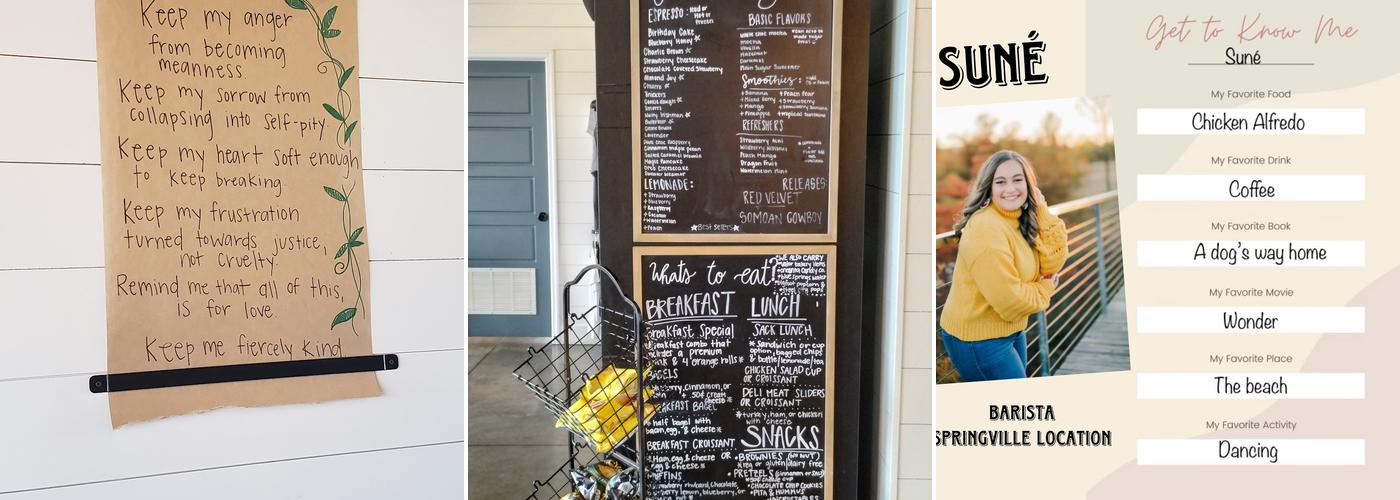 Keep my anger
from becoming
meanness.
Keep my sorrow from
collapsing into self-pity.
Keep my heart soft enough
to keep breaking.
Keep my frustration
turned towards justice,
not cruelty.
Remind me that all of this,
is for love.
Keep me fiercely kind.
ESPRESSO
Birthday Cake
Blueberry Honey
Charlie Brown
Strawberry Cheesecake
Chocolate Covered Strawberry
Almond Joy
Churro
Snickers
Cookie dough
Nutty Irishman
Lavender
Cinnamon maple pecan
Salted Caramel
Maple Pancake
LEMONADE:
+Strawberry
+Blueberry
+Raspberry
+Coconut
+Watermelon
+Peach
BASIC FLAVORS
White choc mocha
mocha
Vanilla
Hazelnut
Caramel
Smoothies:
+Banana
+Mixed Berry
+Mango
+Pineapple
+Peach Pear
+Strawberry
+Strawberry Banana
+Tropical Sunshine
REFRESHERS
Strawberry Acai
Wildberry Hibiscus
Peach Mango
Dragon Fruit
Watermelon Mint
RELEASES:
RED VELVET
SOMOAN COWBOY
★Best Sellers★
Whats to eat?
WE ALSO CARRY
BREAKFAST
Breakfast Special
Breakfast combo that
includes a premium
drink & 4 orange rolls
BAGELS
BREAKFAST BAGEL
* half bagel with
bacon, egg, & cheese
BREAKFAST CROISSANT
*Ham, egg, & cheese OR
egg & cheese
MUFFINS
LUNCH
SACK LUNCH
* Sandwich or cup
option, bagged chips
& bottle/lemonade/tea
CHICKEN SALAD CUP
OR CROISSANT
DELI MEAT SLIDERS
OR CROISSANT
*turkey, ham, or chicken
with cheese
SNACKS
•BROWNIES (no NUT)
reg or gluten/dairy free
•PRETZELS
•CHOCOLATE CHIP COOKIES
•PITA & HUMMUS
SUNÉ
BARISTA
SPRINGVILLE LOCATION
Get to Know Me
Suné
My Favorite Food
Chicken Alfredo
My Favorite Drink
Coffee
My Favorite Book
A dog's way home
My Favorite Movie
Wonder
My Favorite Place
The beach
My Favorite Activity
Dancing